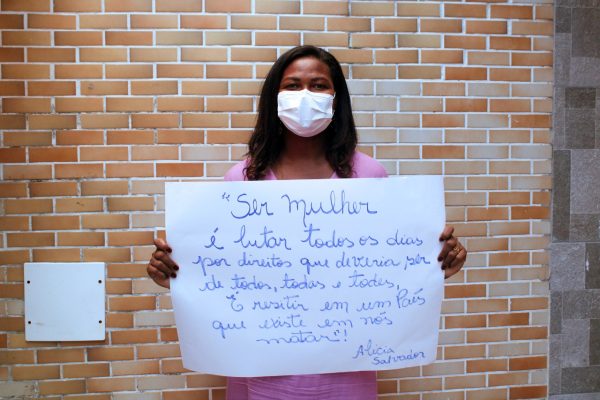 "Ser Mulher
é lutar todos os dias
por direitos que deveria, ser
de todos, todas e todes,
É resistir em um País
que existe em nós
matar"!
Alicia
Salvador